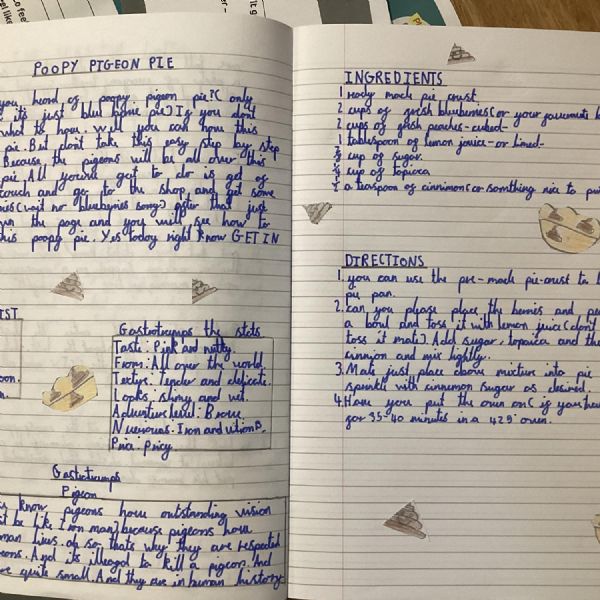 POOPY PIGEON PIE
you heard of poopy pigeon pie?( only
it's just blue pie) If you don't
what to how. Well you can how this
pie. But don't take this easy step by step
Because the pigeons will be all over this
pie. All you've got to do is get of
couch and go to the shop and get some
(wait no blueberries song) after that just
the page and you will see how to
this poopy pie. Yes today right know GET IN
IST
Gastrotrumps the stats
Taste. Pink and nutty.
From. All over the world.
Texture. Tender and delicate.
Looks. shiny and wet.
Adventure level: Brave.
Nutritious: Iron and vitmin B.
Price. Pricy.
Gastrotrumps
Pigeon
know pigeons have outstanding vision
be like Iron man) because pigeons have
man lives. of so thats why they are respected
eons. And its illegal to kill a pigeon. And
quite small. And they are in human history
INGREDIENTS
1 ready made pie crust.
2 cups of fresh blueberries (or your favourite b
2 cups of fresh peaches-cubed-
1 tablespoon of lemon jouice-or limed-
1/2 cup of sugar.
1/4 cup of topioca
1/2 a teaspoon of cinnimon (or somthing nice to pu
DIRECTIONS
1. you can use the pre-made pie-crust to
pie pan.
2. can you please place the berries and pe
a bowl and toss it with lemon juice (don't
toss it mate). Add sugar, topioca and the
cinnion and mix lightly.
3. Mate just place above mixture into pie
sprinkle with cinnemon sugar as desired.
4. Have you put the oven on( if you have
for 35-40 minutes in a 425° oven.